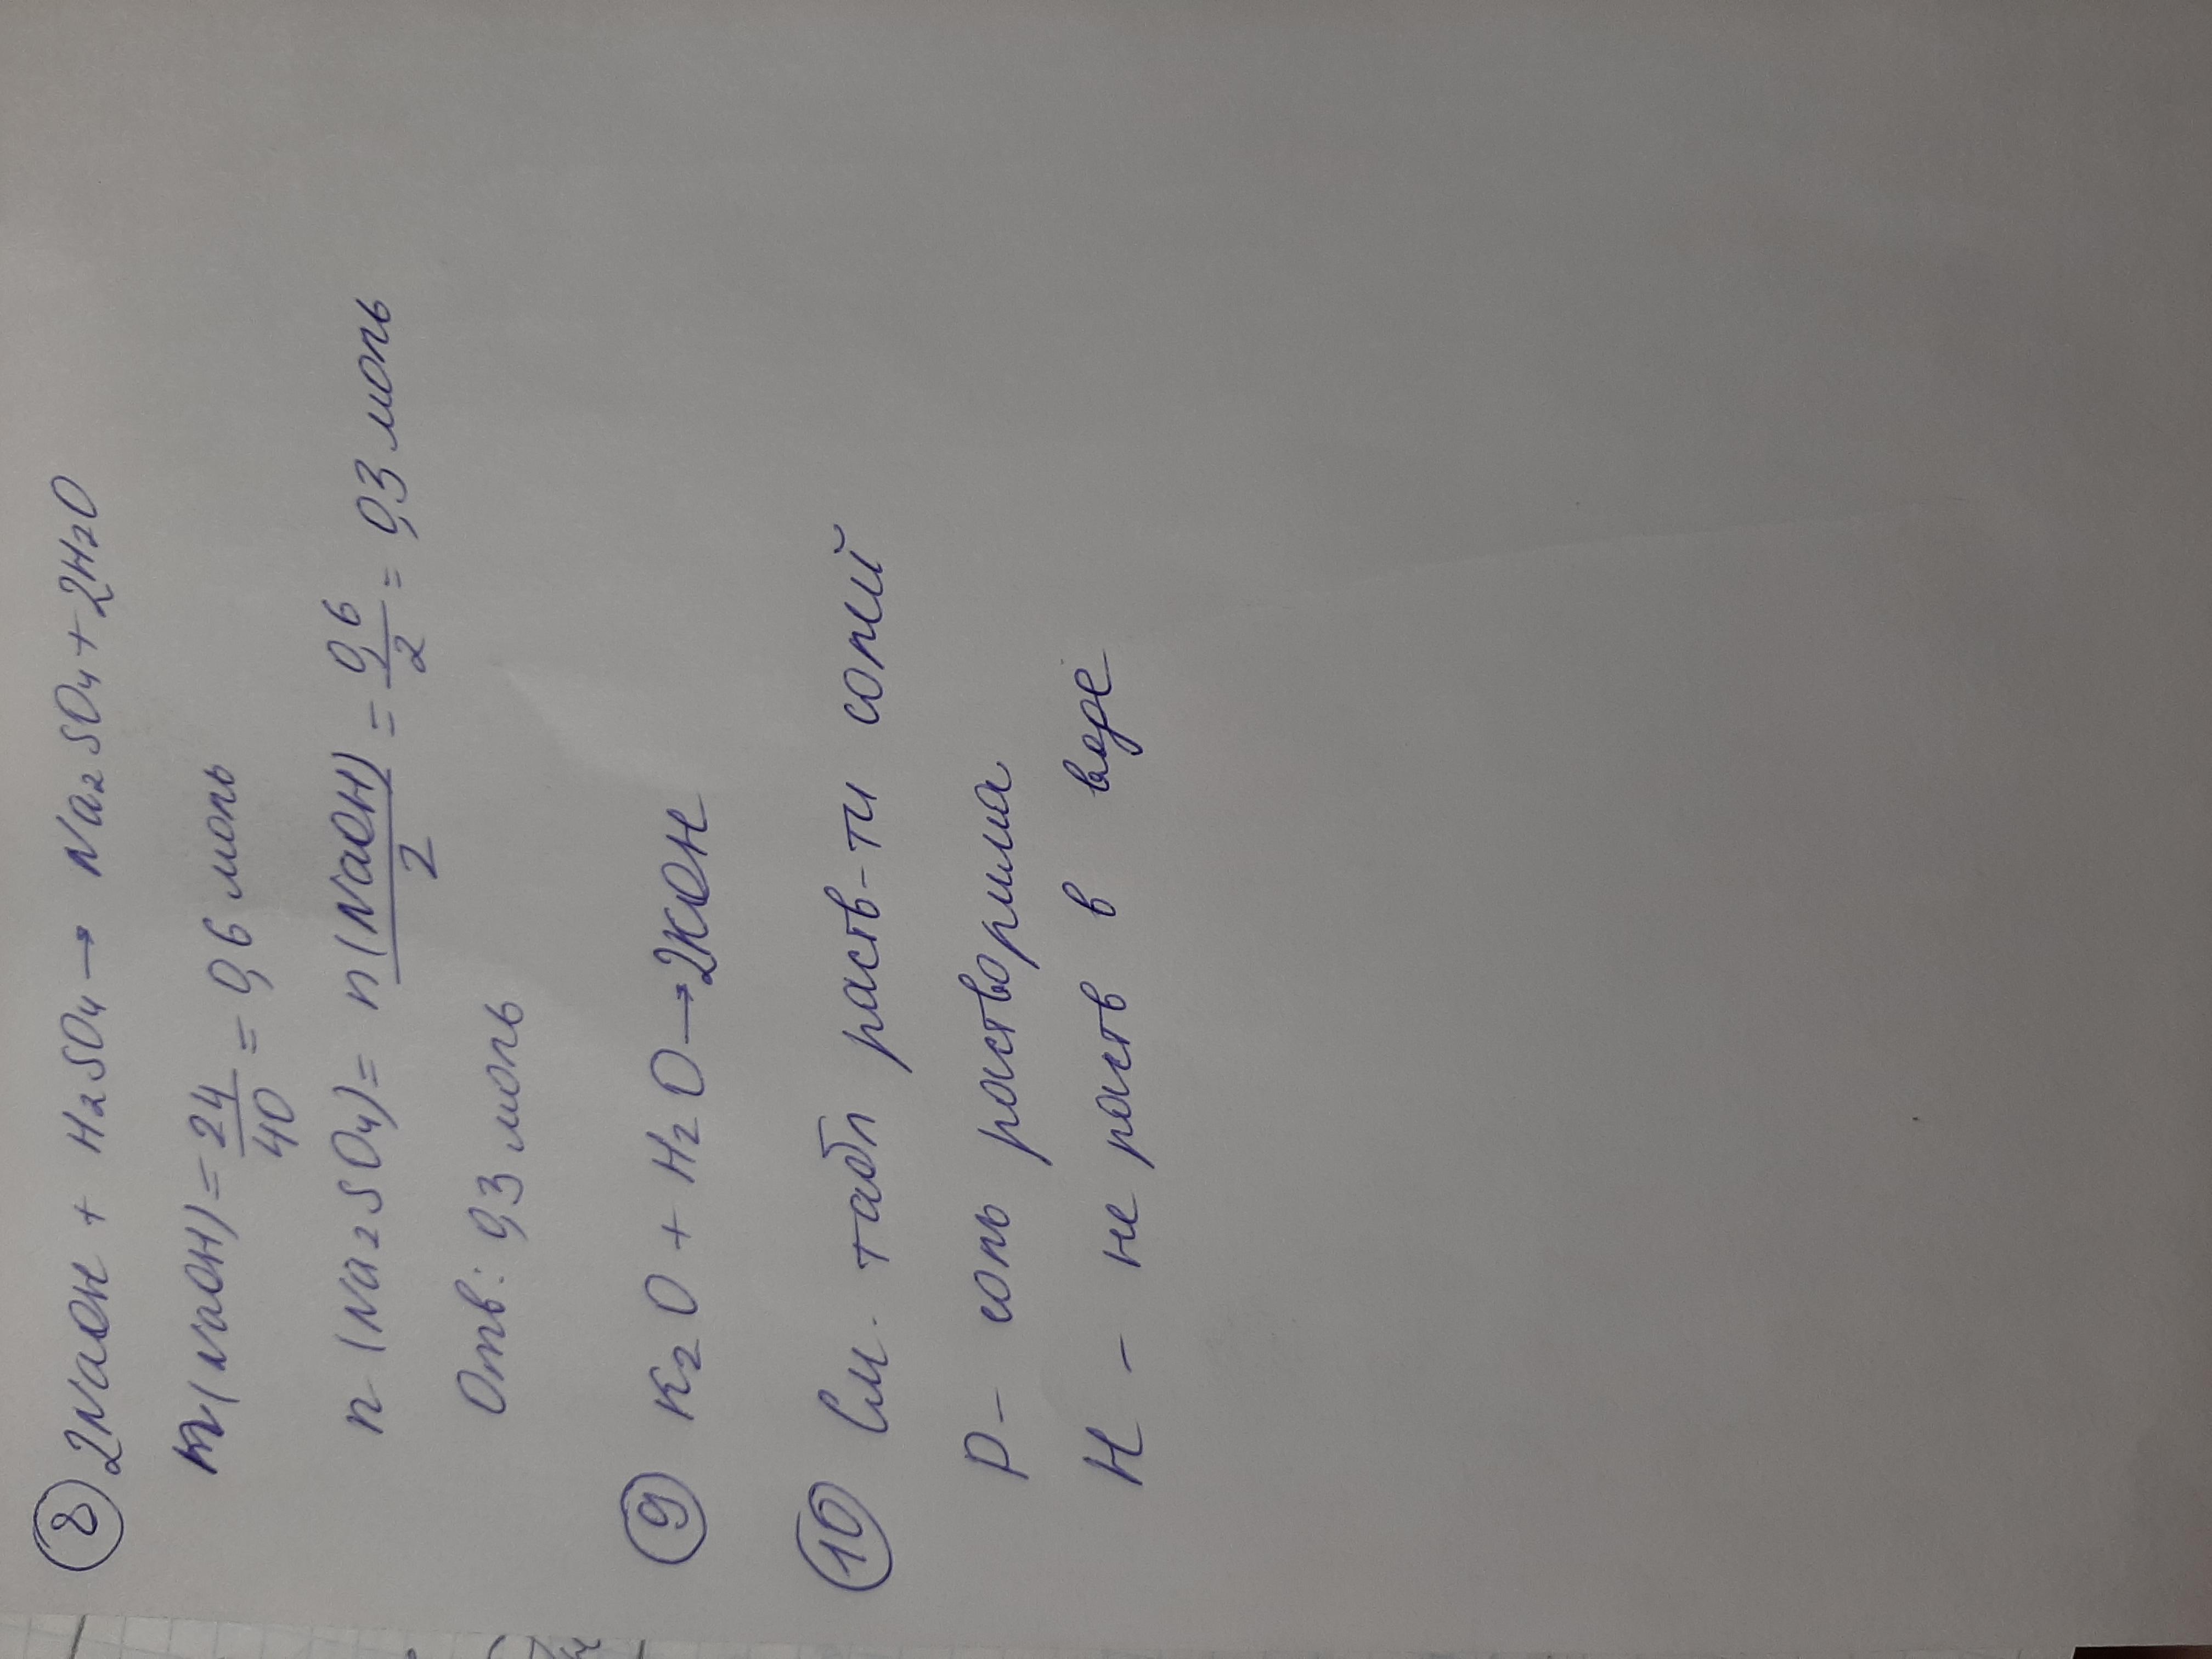 ⑧ 2NaOH + H₂SO₄ → Na₂SO₄ + 2H₂O
n(NaOH) = 24/40 = 0,6 моль
n(Na₂SO₄) = n(NaOH)/2 = 0,6/2 = 0,3 моль
Отв: 0,3 моль
⑨ K₂O + H₂O → 2KOH
⑩ См. табл раств-ти солей
Р - соль растворима
Н - не раств в воде